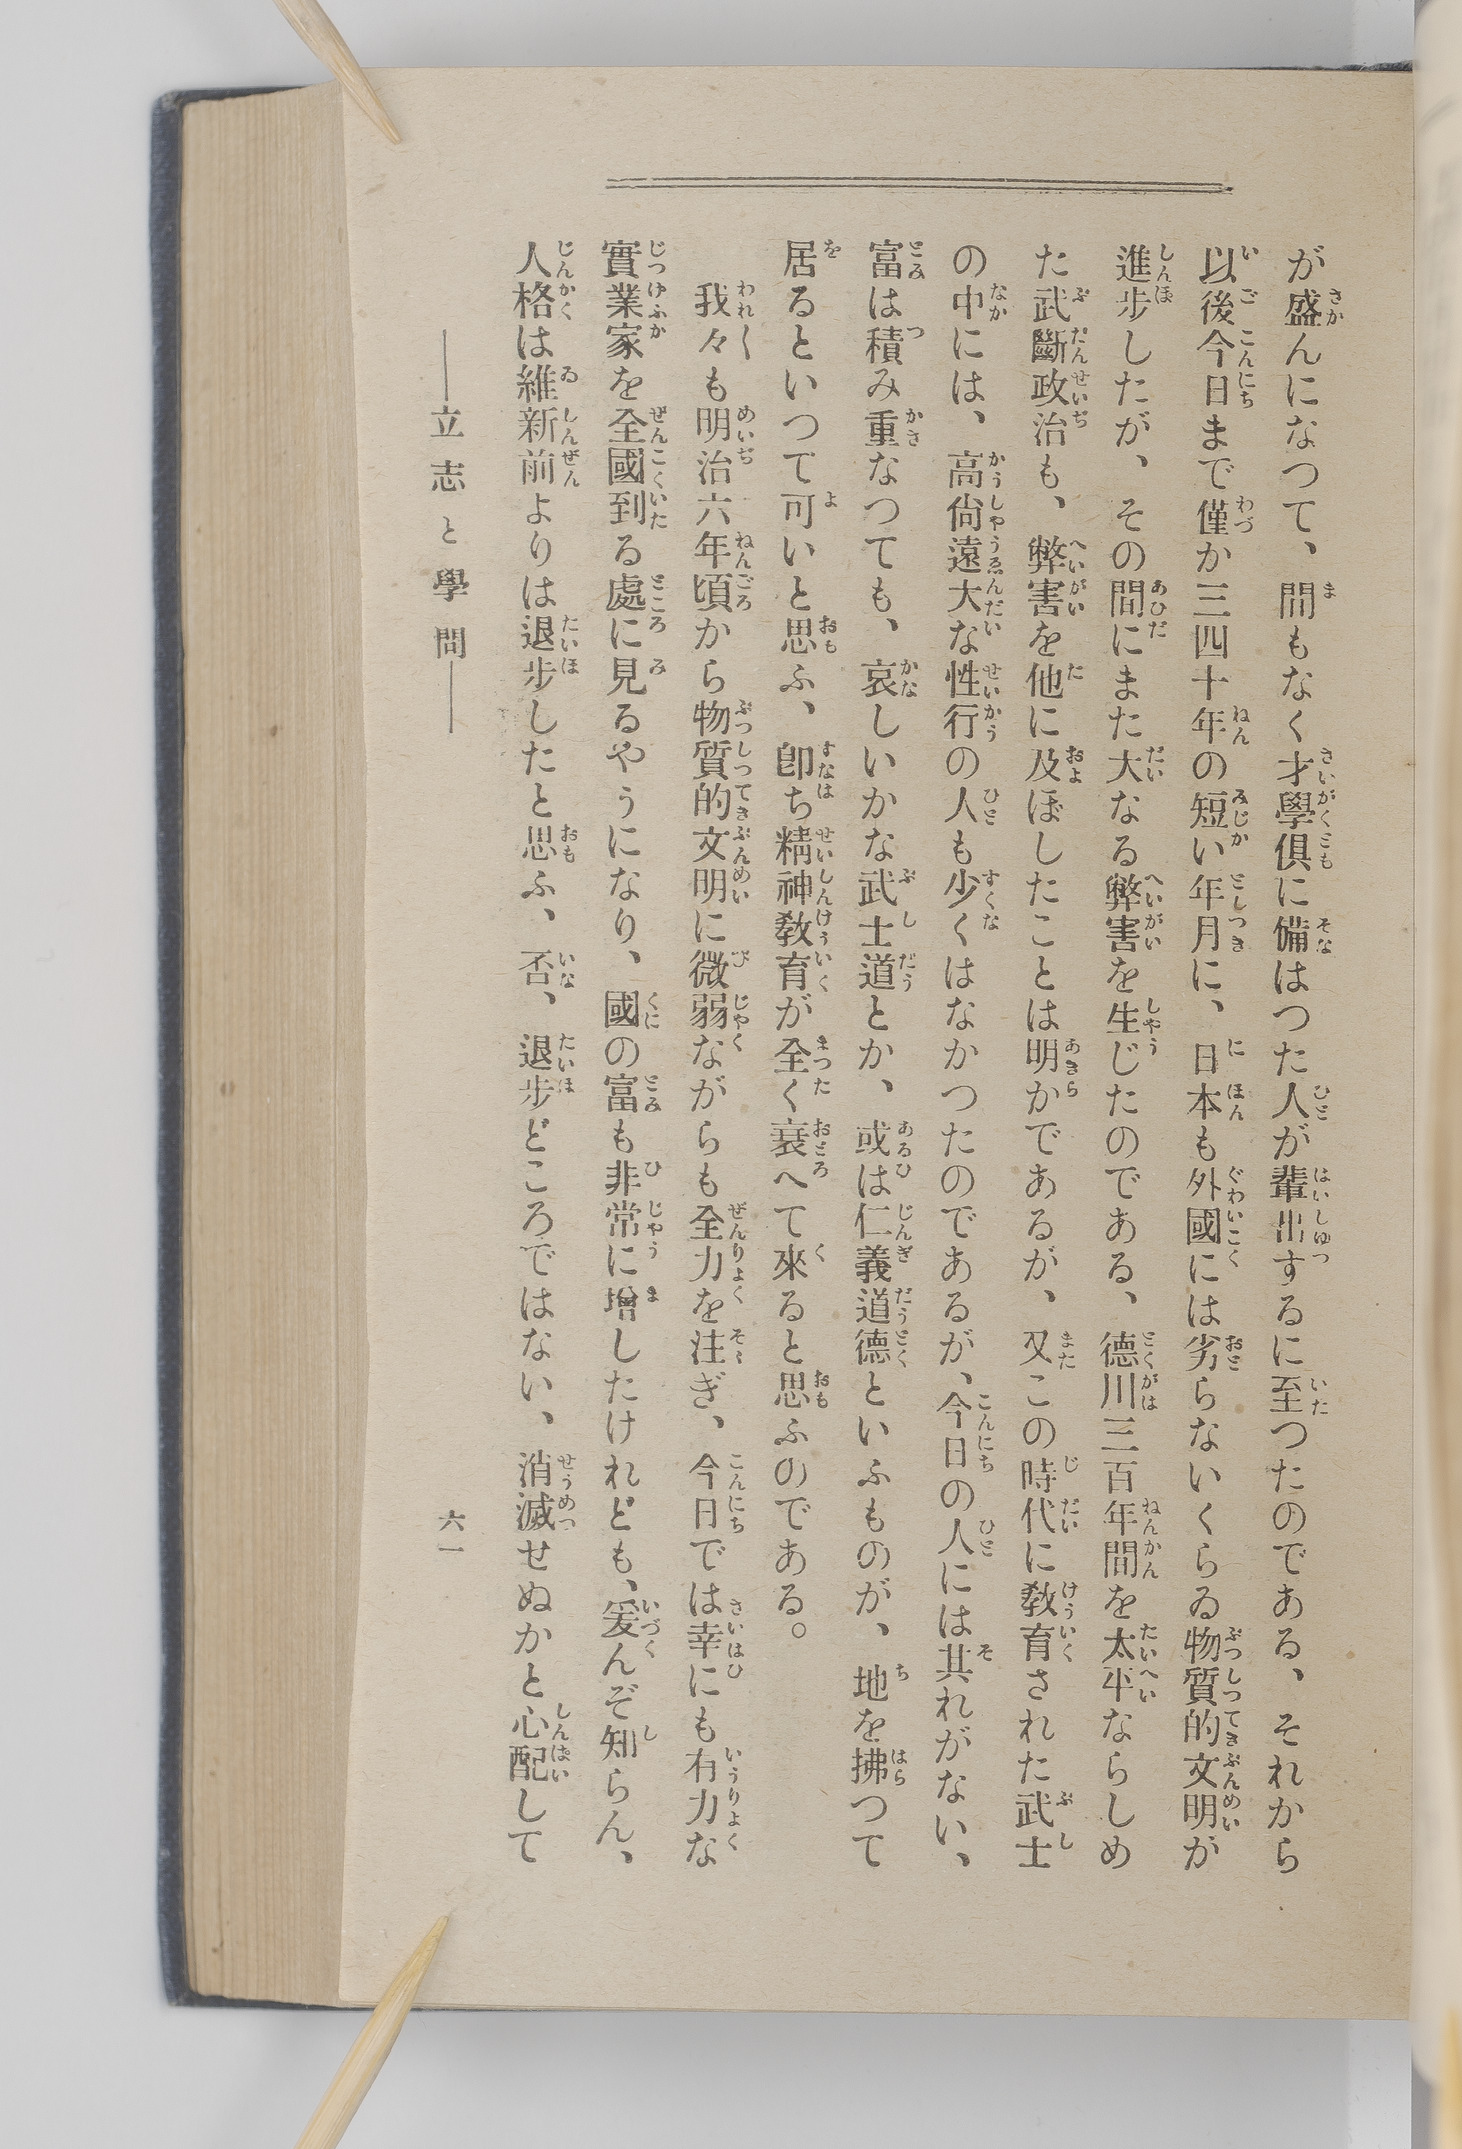 が盛んになつて、間もなく才學倶に備はつた人が輩出するに至つたのである、それから
以後今日まで僅か三四十年の短い年月に、日本も外國には劣らないくらゐ物質的文明が
進步したが、その間にまた大なる弊害を生じたのである、德川三百年間を太平ならしめ
た武斷政治も、弊害を他に及ぼしたことは明かであるが、又この時代に教育された武士
の中には、高尙遠大な性行の人も少くはなかつたのであるが、今日の人には其れがない、
富は積み重なつても、哀しいかな武士道とか、或は仁義道德といふものが、地を拂つて
居るといつて可いと思ふ、卽ち精神教育が全く衰へて來ると思ふのである。
我々も明治六年頃から物質的文明に微弱ながらも全力を注ぎ、今日では幸にも有力な
實業家を全國到る處に見るやうになり、國の富も非常に增したけれども、爰んぞ知らん、
人格は維新前よりは退步したと思ふ、否、退步どころではない、消滅せぬかと心配して
――立志と學問――
六一